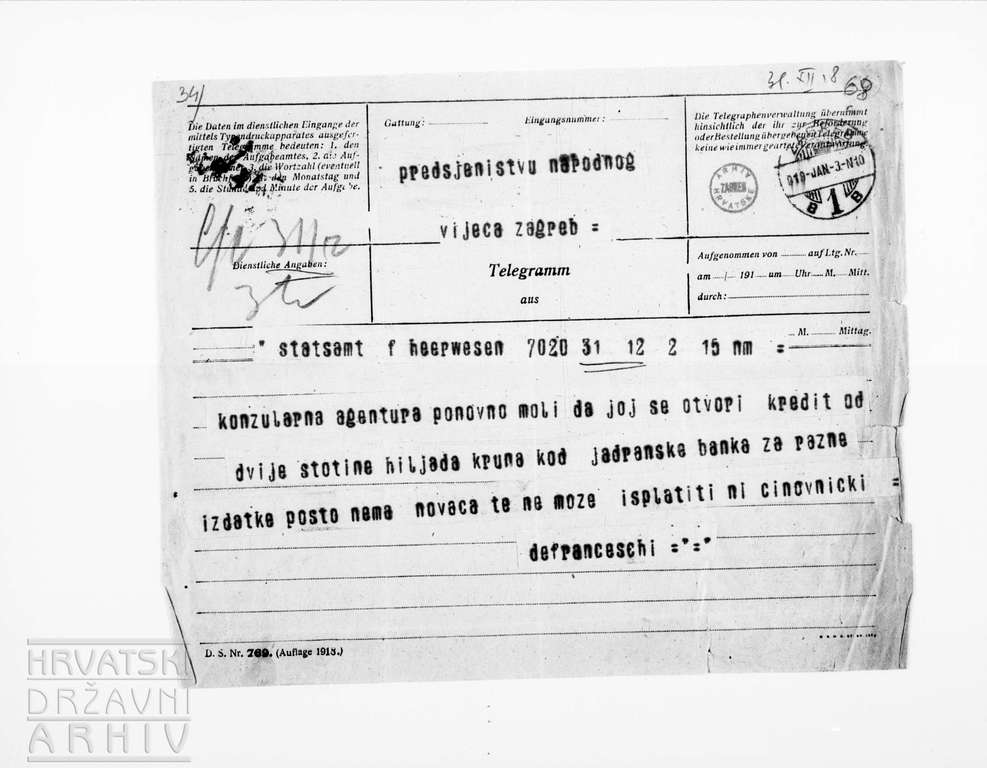 34/
31. XII 18
68
Die Daten im dienstlichen Eingange der
mittels Typendruckapparates ausgefer-
tigten Telegramme bedeuten: 1. den
Namen des Aufgabeamtes, 2. die Auf-
gabenummer, 3. die Wortzahl (eventuell
in Bruchform), 4. den Monatstag und
5. die Stunde und Minute der Aufgabe.
Gattung:
Eingangsnummer:
Die Telegraphenverwaltung übernimmt
hinsichtlich der ihr zur Beförderung
oder Bestellung übergebenen Telegramme
keine wie immer geartete Verantwortung.
predsjenistvu narodnog
vijeca zagreb =
ARHIV
ZAGREB
HRVATSKE
919-JAN-3-N10
B 1 B
Dienstliche Angaben:
Telegramm
aus
Aufgenommen von auf Ltg. Nr.
am / 191 um Uhr M. Mitt.
durch:
M. Mittag.
" statsamt f heerwesen 7020 31 12 2 15 nm =
konzularna agentura ponovno moli da joj se otvori kredit od
dvije stotine hiljada kruna kod jadranske banka za razne
izdatke posto nema novaca te ne moze isplatiti ni cinovnicki =
defranceschi ="="
D. S. Nr. 769. (Auflage 1918.)
HRVATSKI
DRŽAVNI
ARHIV